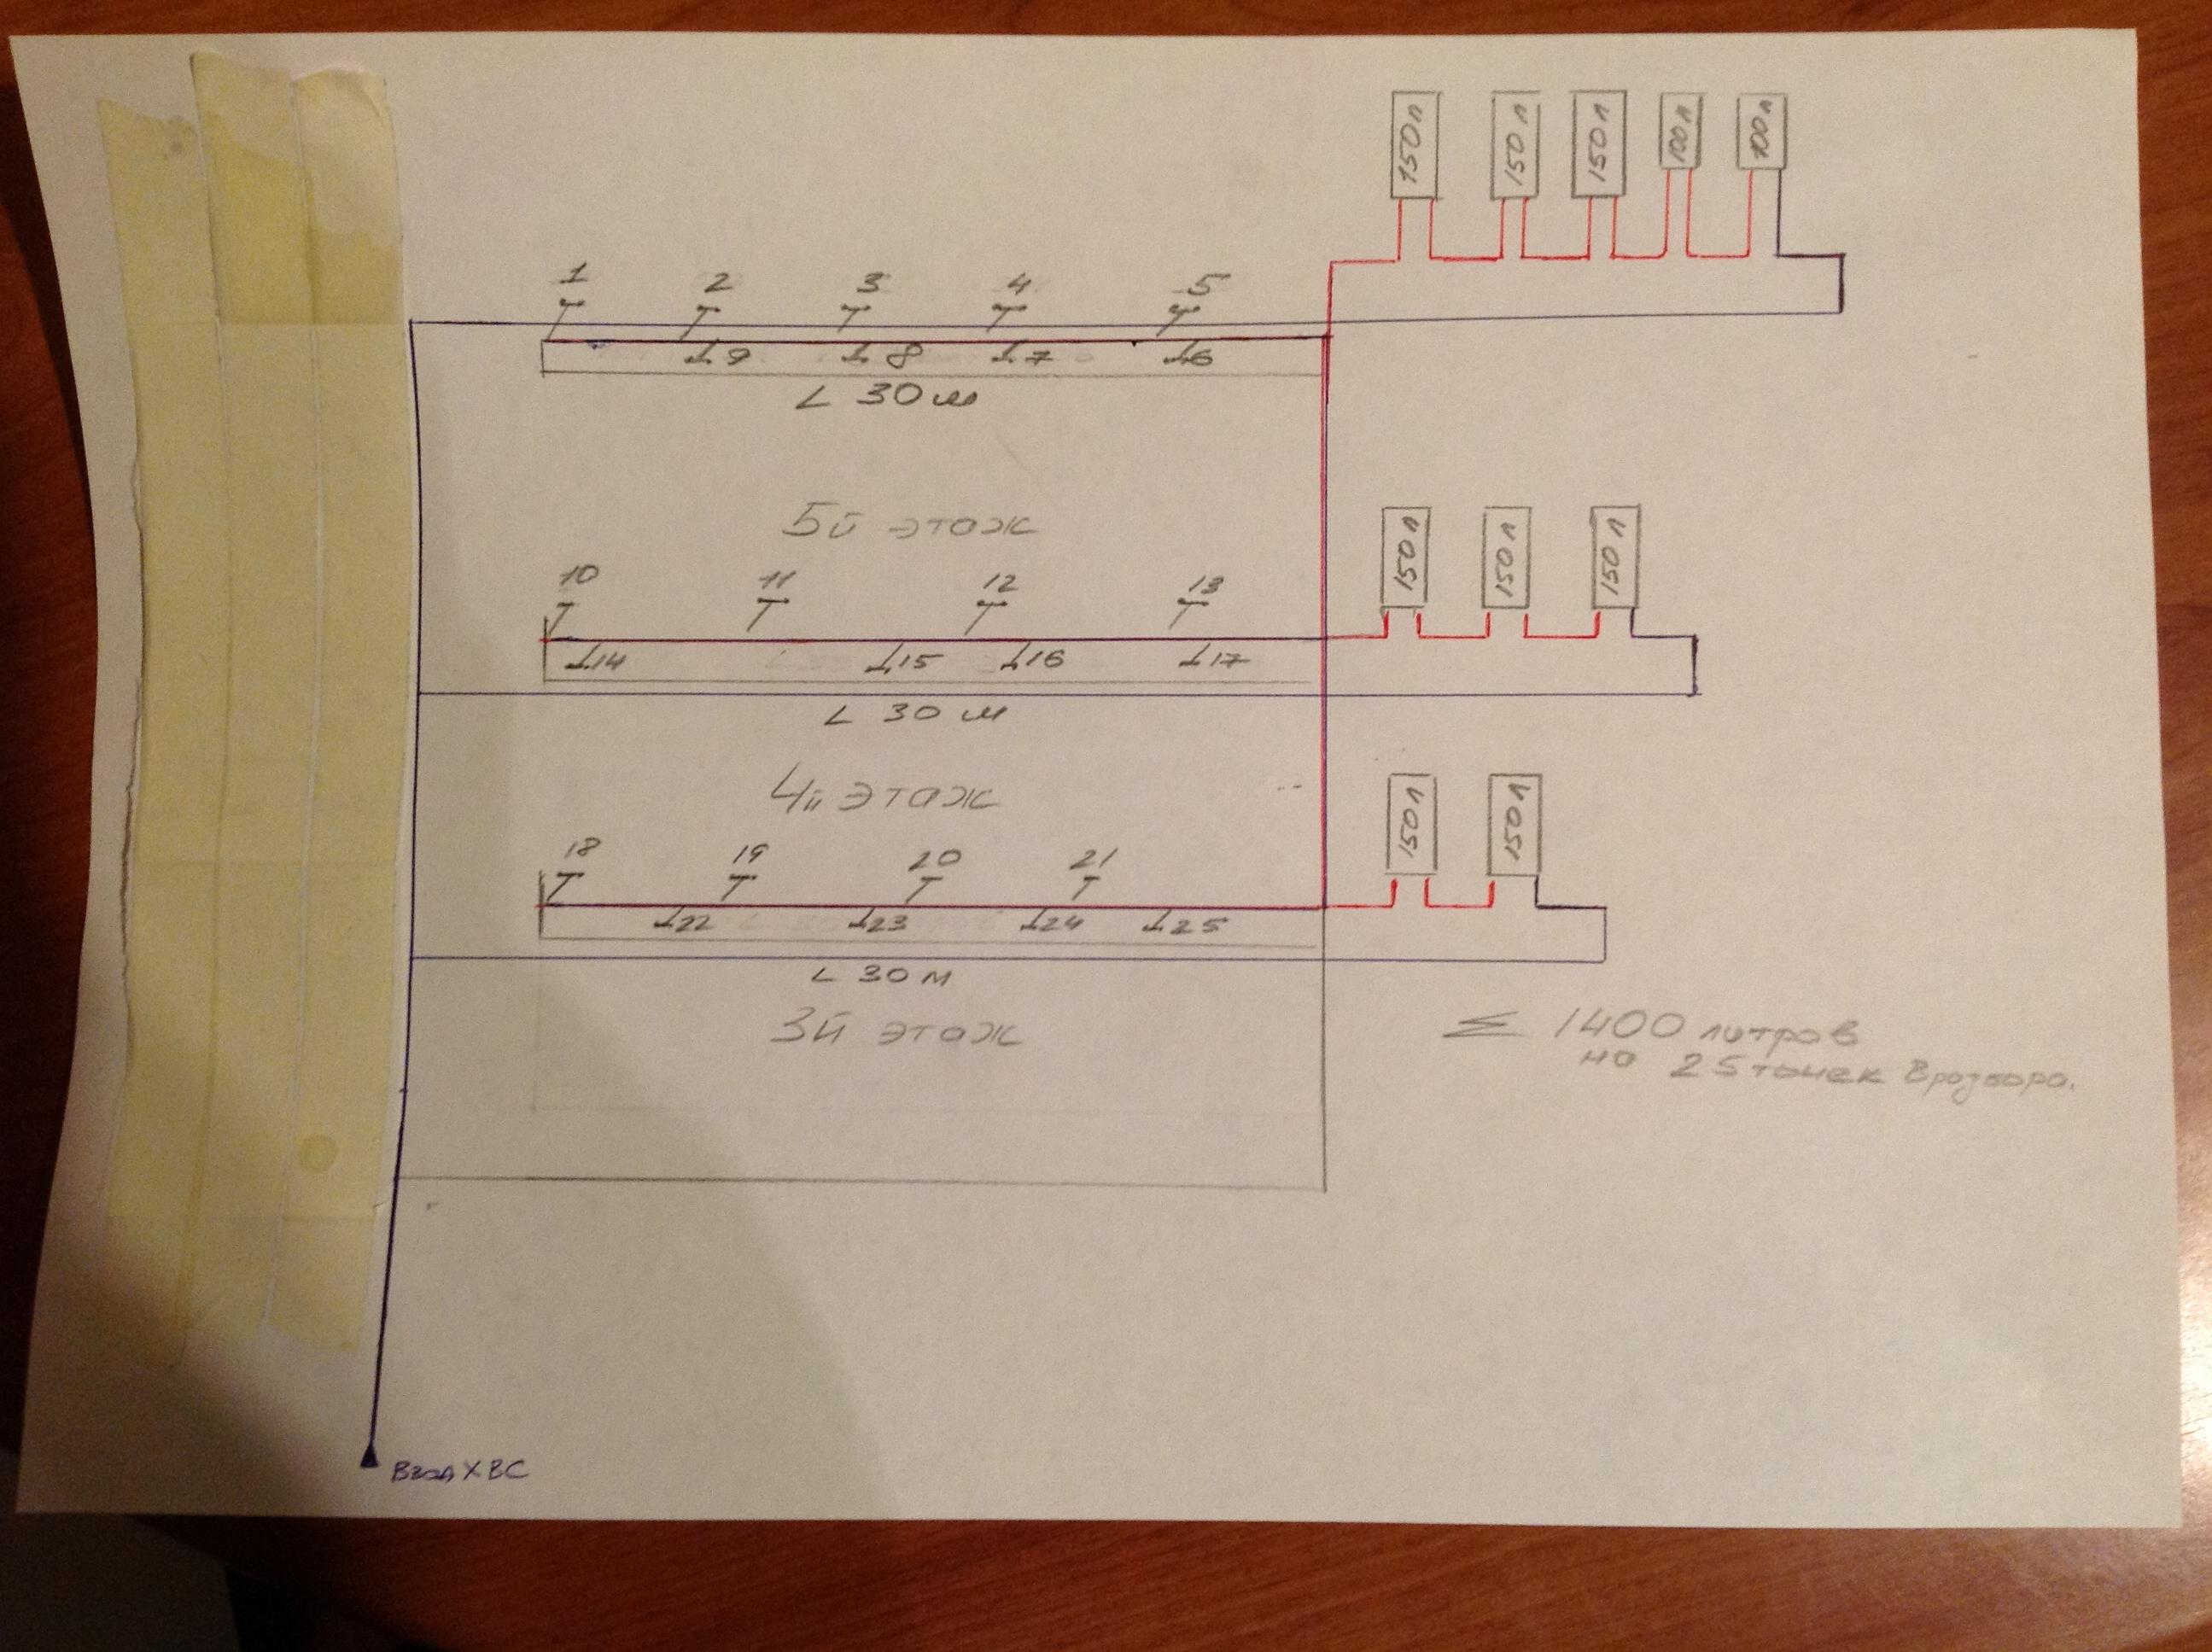 150л 150л 150л 100л 100л
1 2 3 4 5
9 8 7 6
L 30 м
5й этаж
150л 150л 150л
10 11 12 13
14 15 16 17
L 30 м
4й этаж
150л 150л
18 19 20 21
22 23 24 25
L 30 м
3й этаж
Σ 1400 литров
на 25 точек Вразбора.
Ввод ХВС